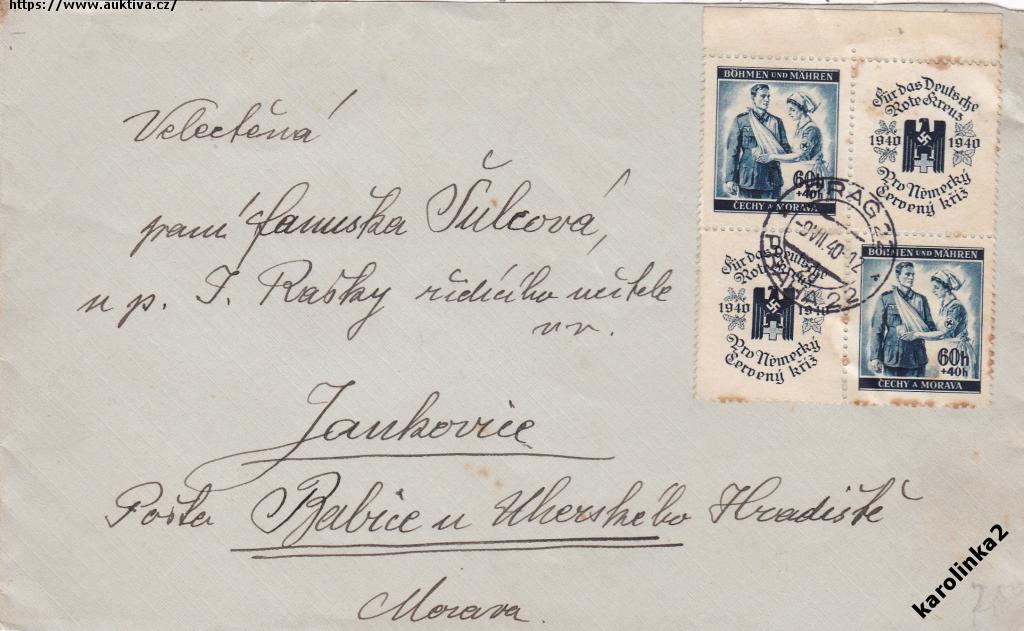 https://www.auktiva.cz/
Velectěná
paní Januška Šulcová,
u p. J. Rašky řídícího učitele
vv.
Jankovice
Pošta Babice u Uherského Hradiště
Morava.
BÖHMEN UND MÄHREN
60h
+40h
ČECHY A MORAVA
Für das Deutsche
Rote Kreuz
1940 1940
Pro Německý
Červený kříž
Für das Deutsche
Rote Kreuz
1940 1940
Pro Německý
Červený kříž
BÖHMEN UND MÄHREN
60h
+40h
ČECHY A MORAVA
PRAG 22
VII.40-12
PRAHA 22
karolinka2